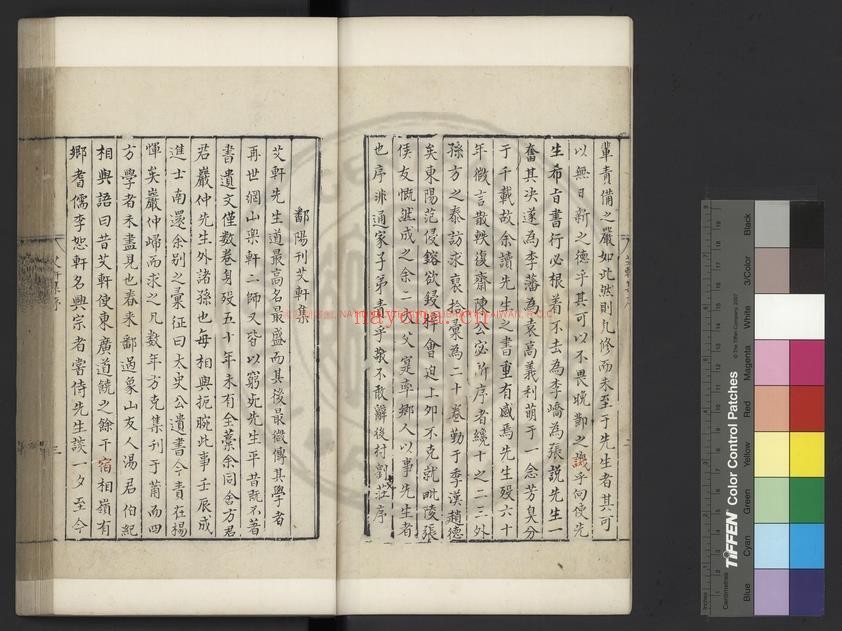 輩責備之嚴如此然則凡修而未至于先生者其可
以無日新之德乎其可以不畏晚節之難乎向使先
生希旨書行必根著不去為李嶠為張說先生一
奮其決遂為李藩為袁高義利萌于一念芳臭分
于千載故余讀先生之書重有感焉先生歿六十
年微言散軼復齋陳公宓所序者纔十之二三外
孫方之泰訪求裒拾彙為二十卷勤于季漢趙德
矣東陽范侵鎔欲鋟梓會迫上卯不克就毗陵張
侯友慨然成之余二大父寔率鄉人以事先生者
也序非通家子弟責乎敬不敢辭後村劉莊序
鄱陽刊艾軒集
艾軒先生道最高名最盛而其後最微傳其學者
再世網山樂軒二師又皆以窮死先生平昔既不著
書遺文僅數卷身歿五十年未有全藁余同舍方君
君嚴仲先生外諸孫也每相與扼腕此事壬辰成
進士南還余別之彙征曰太史公遺書今責在楊
惲矣嚴仲歸而求之凡數年方克集刊于莆而四
方學者未盡見也春來鄱過象山友人湯君伯紀
相與語曰昔艾軒使東廣道饒之餘干宿相嶺有
鄉耆儒李恕軒名興宗者嘗侍先生談一夕至今
誠
宿
艾軒集序
三
nayona.cn
Inches
Centimetres
TIFFEN Color Control Patches
© The Tiffen Company, 2007
Blue
Cyan
Green
Yellow
Red
Magenta
White
3/Color
Black